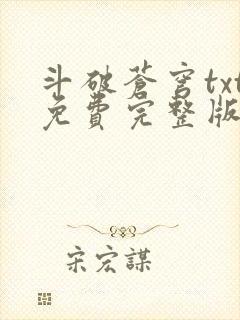 斗破蒼穹txt
免費完整版
宋宏謀